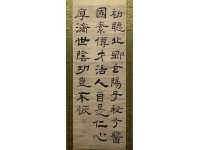 初聽北鄉玄陽子秘手醫
國素傳才活人自是仁心
厚濟世陰功豈不恢